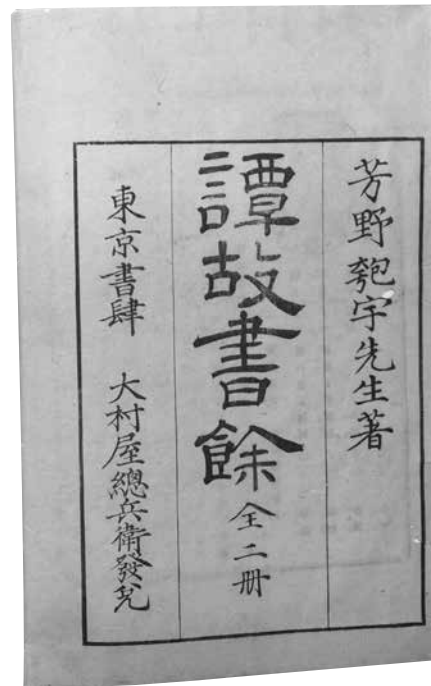 芳野匏宇先生著
譚故書餘 全二册
東京書肆 大村屋總兵衛發兌